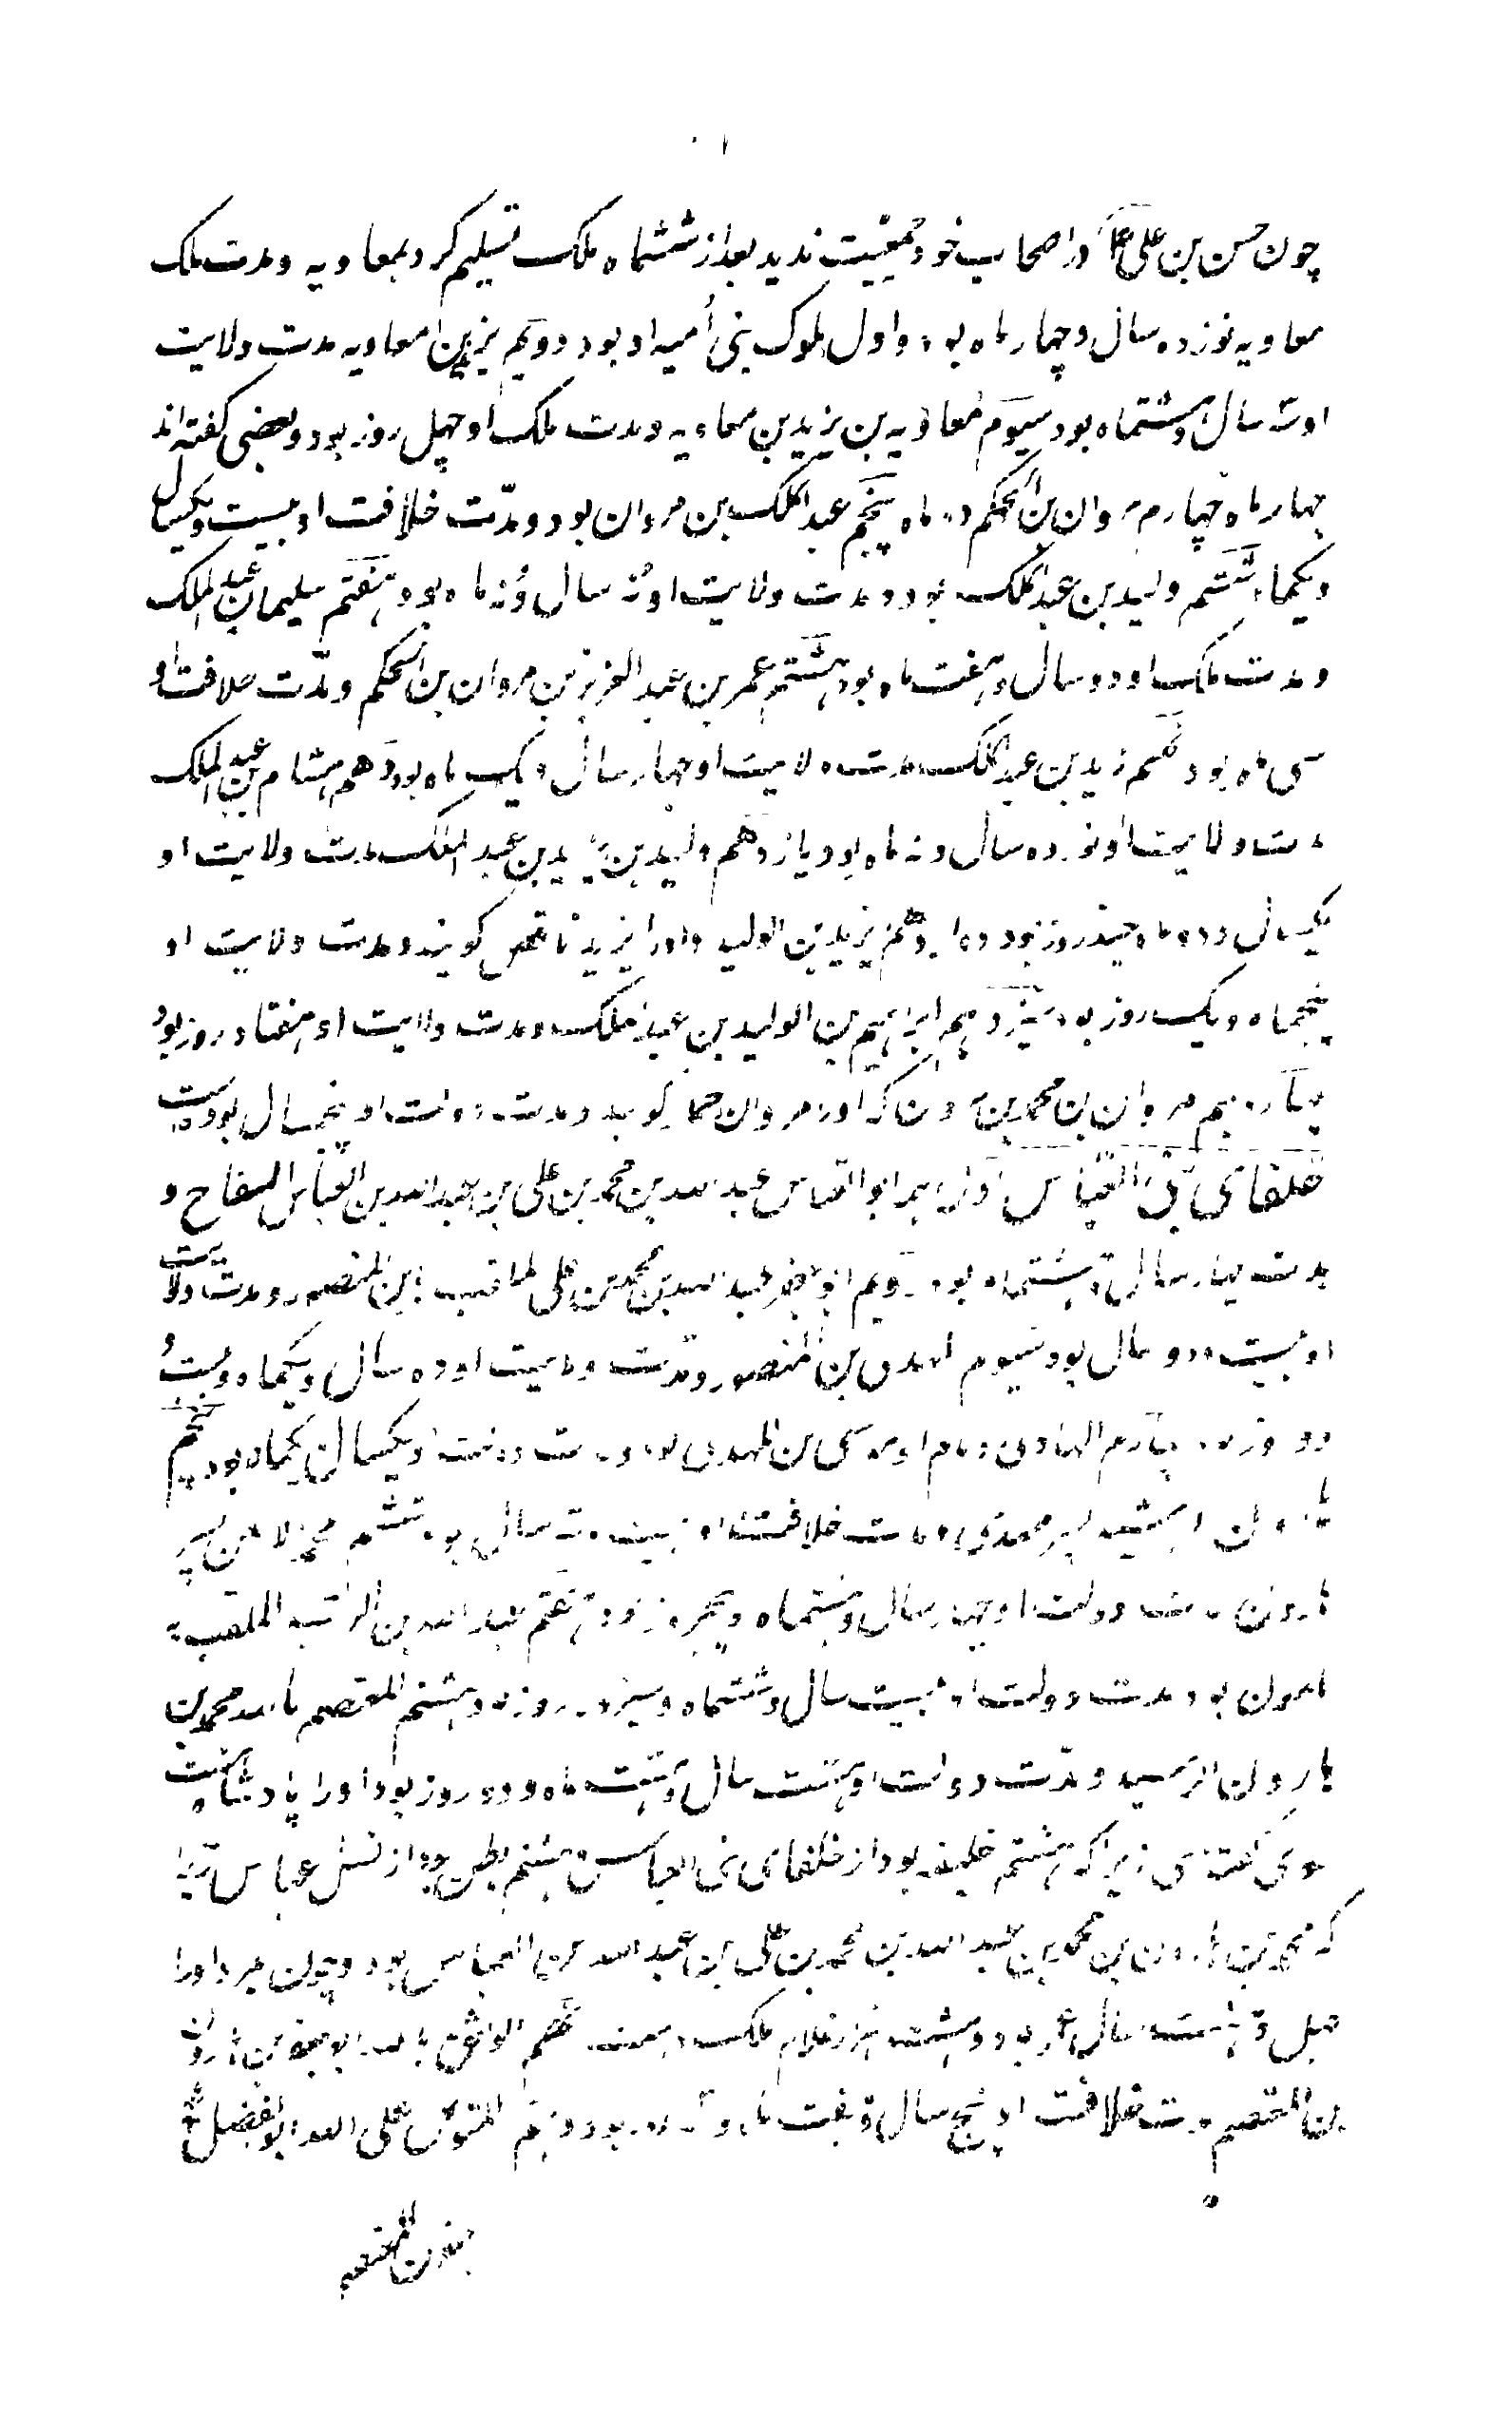 چون حسن بن علی در اصحاب خود جمعیت ندید بعد از ششماه ملک تسلیم کرد بمعاویه و مدت ملک
معاویه نوزده سال و چهار ماه بود و اول ملوک بنی امیه او بود دویم یزید بن معاویه مدت ولایت
او سه سال و هشتماه بود سیوم معاویه بن یزید بن معاویه و مدت ملک او چهل روز بود و بعضی گفته اند
چهار ماه چهارم مروان بن الحکم ده ماه پنجم عبد الملک بن مروان بود و مدت خلافت او بیست و یکسال
و یکماه ششم ولید بن عبد الملک بود و مدت ولایت او نه سال و نه ماه بود هفتم سلیمان بن عبد الملک
و مدت ملک او دو سال و هفت ماه بود هشتم عمر بن عبد العزیز بن مروان بن الحکم و مدت خلافت او
سی ماه بود نهم یزید بن عبد الملک مدت ولایت او چهار سال و یک ماه بود دهم هشام بن عبد الملک
مدت ولایت او نوزده سال و نه ماه بود یازدهم ولید بن یزید بن عبد الملک مدت ولایت او
یکسال و دو ماه و چند روز بود دوازدهم یزید بن الولید و او را یزید ناقص گویند و مدت ولایت او
پنجماه و یک روز بود سیزدهم ابراهیم بن الولید بن عبد الملک و مدت ولایت او هفتاد روز بود
چهاردهم مروان بن محمد بن مروان که او را مروان حمار گویند و مدت دولت او پنجسال بود
خلفای بنی العباس اول ابو العباس عبد الله بن محمد بن علی بن عبد الله بن العباس السفاح و
مدت چهار سال و هشتماه بود دویم ابو جعفر عبد الله بن محمد بن علی الملقب المنصور و مدت ولایت
او بیست و دو سال بود سیوم المهدی بن المنصور و مدت ولایت او ده سال و یکماه و بیست و
دو روز چهارم الهادی و نام او موسی بن المهدی بود و مدت دولت او یکسال و یکماه بود پنجم
هارون الرشید پسر مهدی و مدت خلافت او بیست و سه سال بود ششم محمد الامین پسر
هارون مدت دولت او چهار سال و هشتماه و روز بود هفتم عبد الله بن الرشید الملقب به
مامون بود مدت دولت او بیست سال و ششماه و سیزده روز و هشتم المعتصم بالله محمد بن
هارون الرشید و مدت دولت او هشت سال و هشت ماه و دو روز بود او را پادشاه
گفتندی زیرا که هشتم خلیفه بود از خلفای بنی العباس و هشتم بطن بود از نسل عباس
که محمد بن هارون بن محمد بن عبد الله بن محمد بن علی بن عبد الله بن العباس بود و چون بمرد او را
چهل و هشت سال عمر بود و هشت هزار غلام ملک نهم الواثق بالله ابو جعفر هارون
بن المعتصم مدت خلافت او پنج سال و هفت ماه و بود دهم المتوکل علی الله ابو الفضل
جعفر بن المعتصم